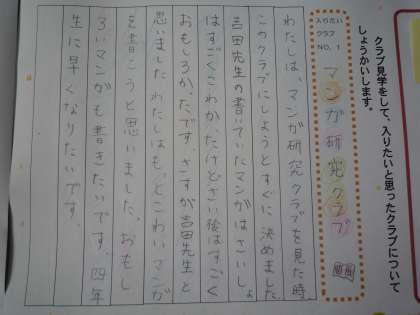 クラブ見学をして、入りたいと思ったクラブについて
しょうかいします。
入りたい
クラブ
NO.1
マンガ研究クラブ
わたしは、マンガ研究クラブを見た時
このクラブにしようとすぐに決めました
吉田先生の書いていたマンガはさいしょ
はすごくこわかったけどさい後はすごく
おもしろかたです。さすが吉田先生と
思いましたわたしはもっとこわいマンガ
を書こうと思いました、おもし
ろいマンガも書きたいです、四年
生に早くなりたいです